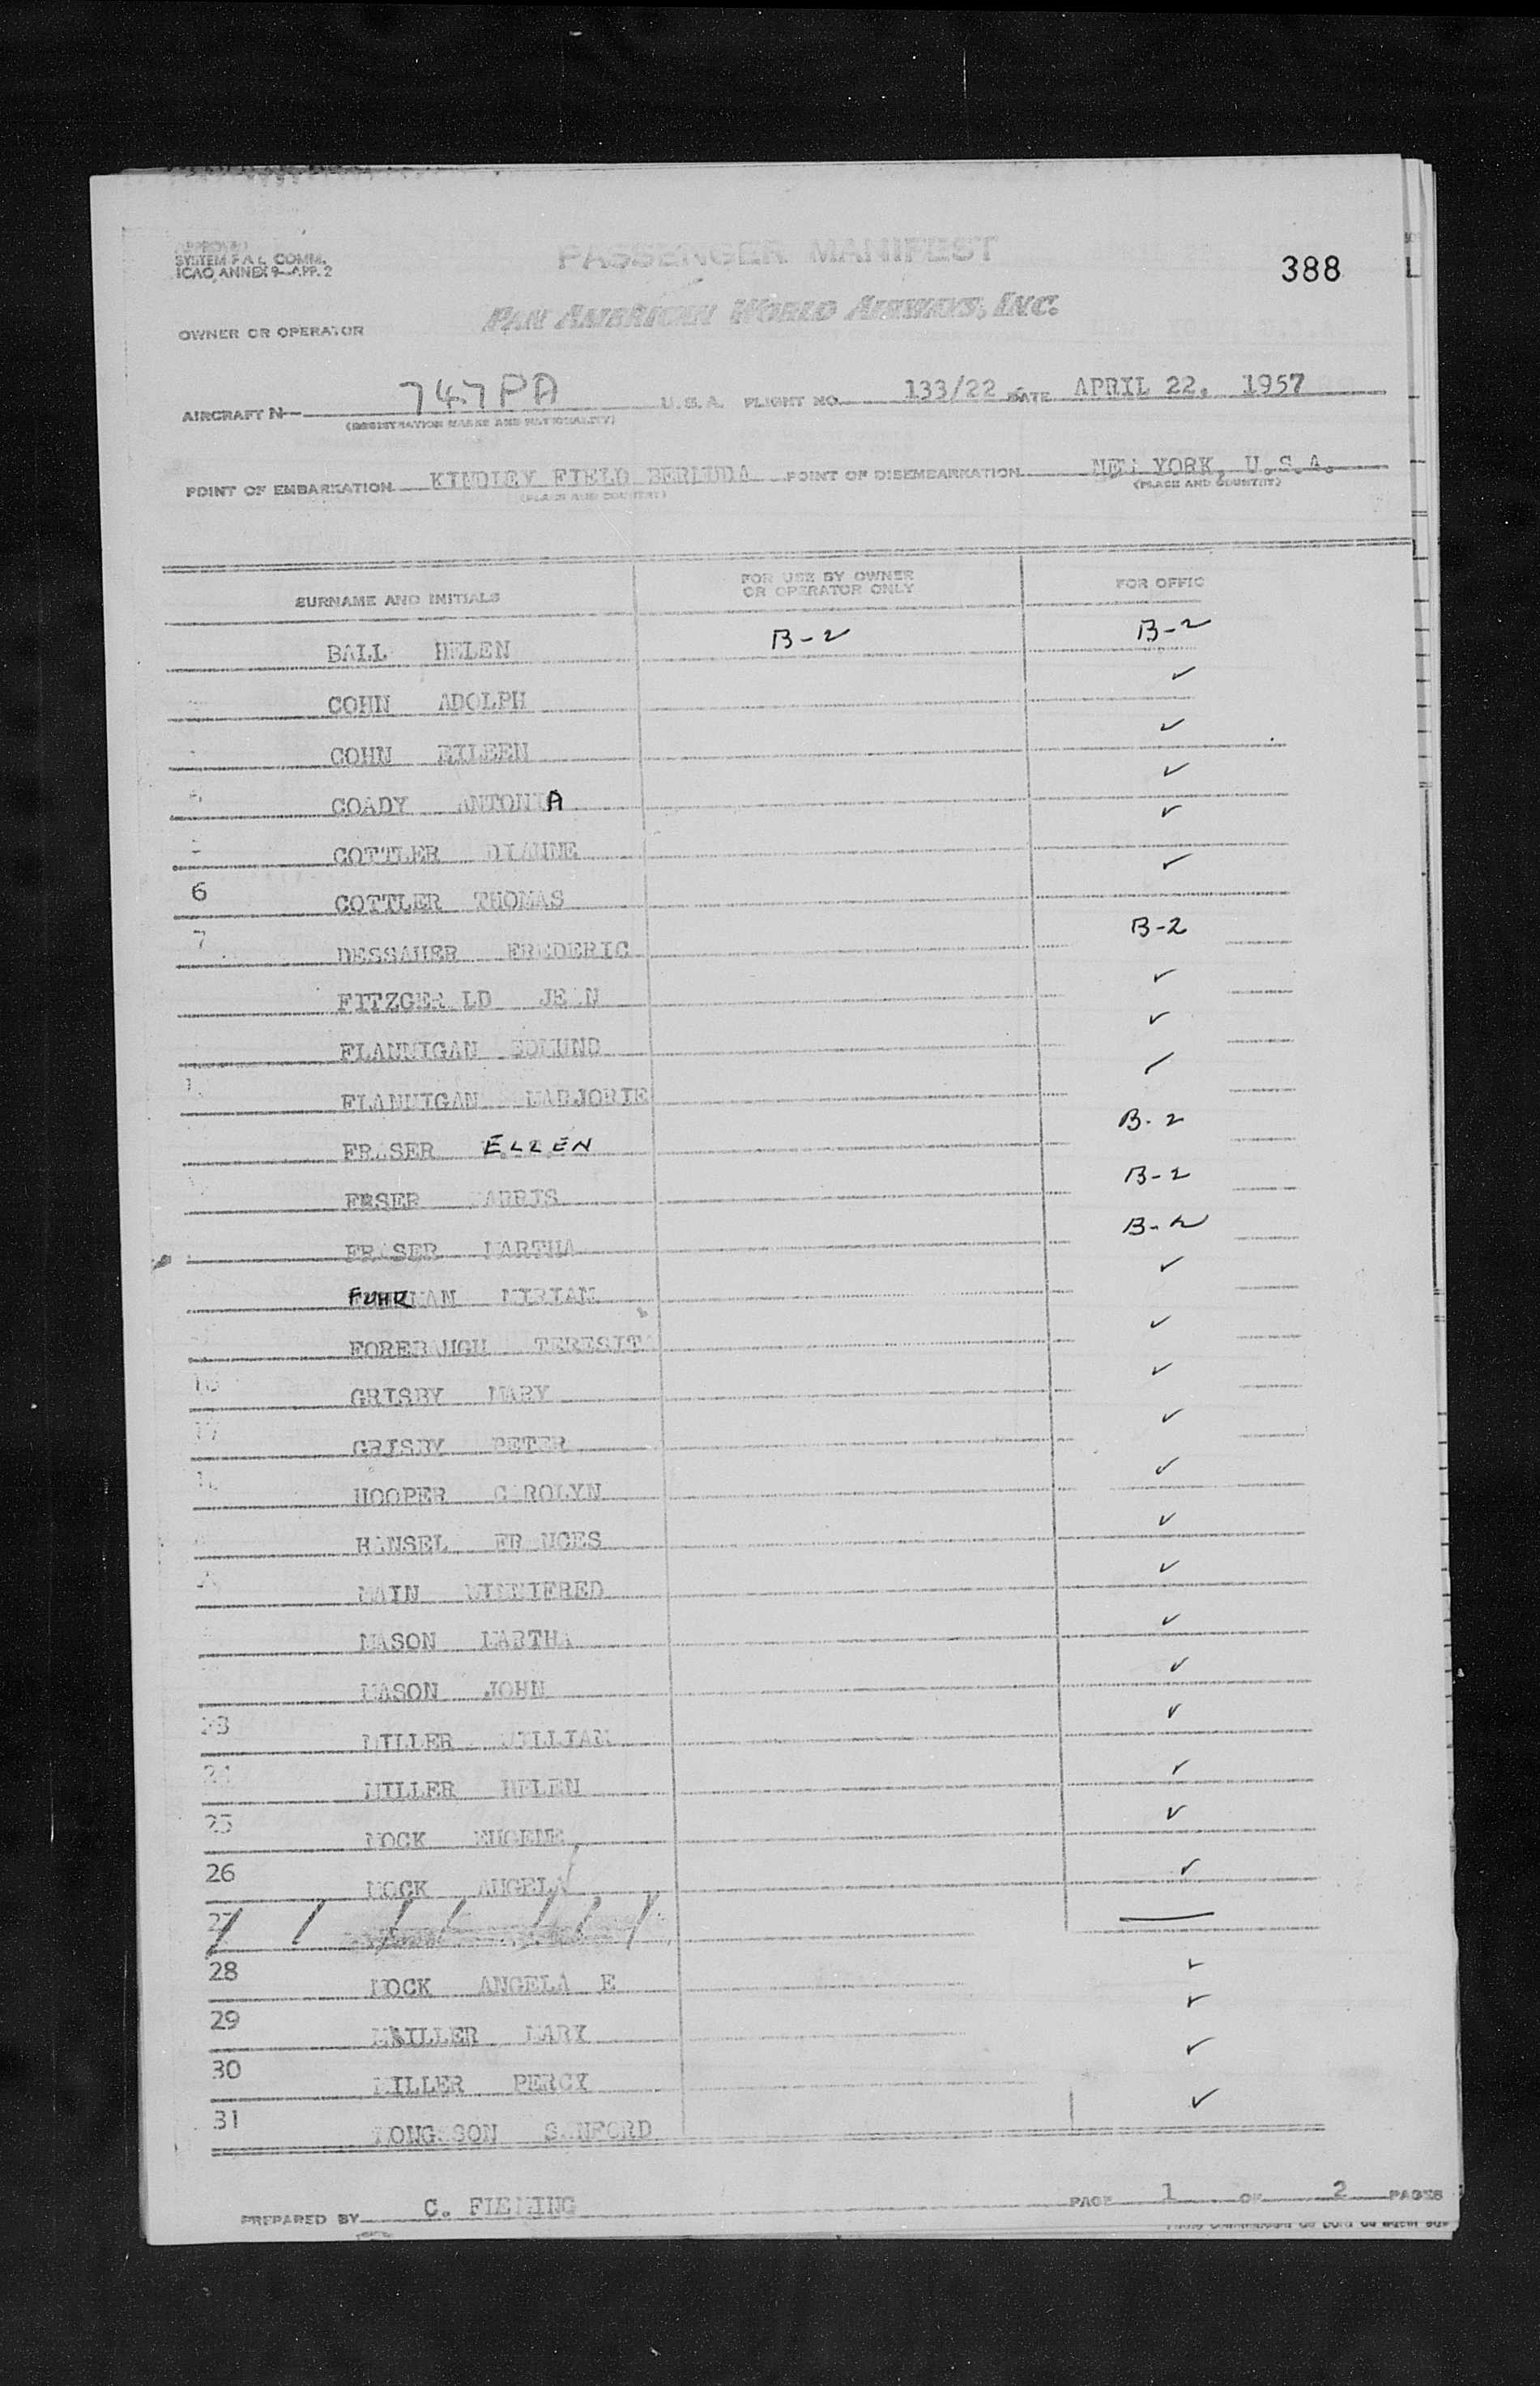 APPROVED
SYSTEM F A L COMM.
ICAO ANNEX 9—APP. 2
PASSENGER MANIFEST
388
PAN AMERICAN WORLD AIRWAYS, INC.
OWNER OR OPERATOR
AIRCRAFT N— 747PA U. S. A. FLIGHT NO. 133/22 DATE APRIL 22, 1957
(REGISTRATION MARKS AND NATIONALITY)
POINT OF EMBARKATION KINDLEY FIELD BERMUDA POINT OF DISEMBARKATION NEW YORK, U.S.A.
(PLACE AND COUNTRY) (PLACE AND COUNTRY)
SURNAME AND INITIALS FOR USE BY OWNER OR OPERATOR ONLY FOR OFFIC
BALL HELEN B-2 B-2
COHN ADOLPH ✓
COHN EILEEN ✓
COADY ANTONIA ✓
COTTLER DIANNE ✓
6 COTTLER THOMAS ✓
7 DESSAUER FREDERIC B-2
FITZGERALD JEAN ✓
FLANNIGAN EDMUND ✓
FLANNIGAN MARJORIE ✓
FRASER ELLEN B-2
FRSER HARRIS B-2
FRASER MARTHA B-2
FUHRMAN MIRIAM ✓
FOREBAUGH TERESITA ✓
16 GRISBY MARY ✓
17 GRISBY PETER ✓
HOOPER CAROLYN ✓
HANSEL FRANCES ✓
MAIN WINNIFRED ✓
MASON MARTHA ✓
MASON JOHN ✓
23 MILLER WILLIAM ✓
24 MILLER HELEN ✓
25 MOCK EUGENE ✓
26 MOCK ANGELA ✓
27
28 MOCK ANGELA E ✓
29 MILLER MARY ✓
30 MILLER PERCY ✓
31 SANFORD ✓
PREPARED BY C. FLEMING PAGE 1 OF 2 PAGES